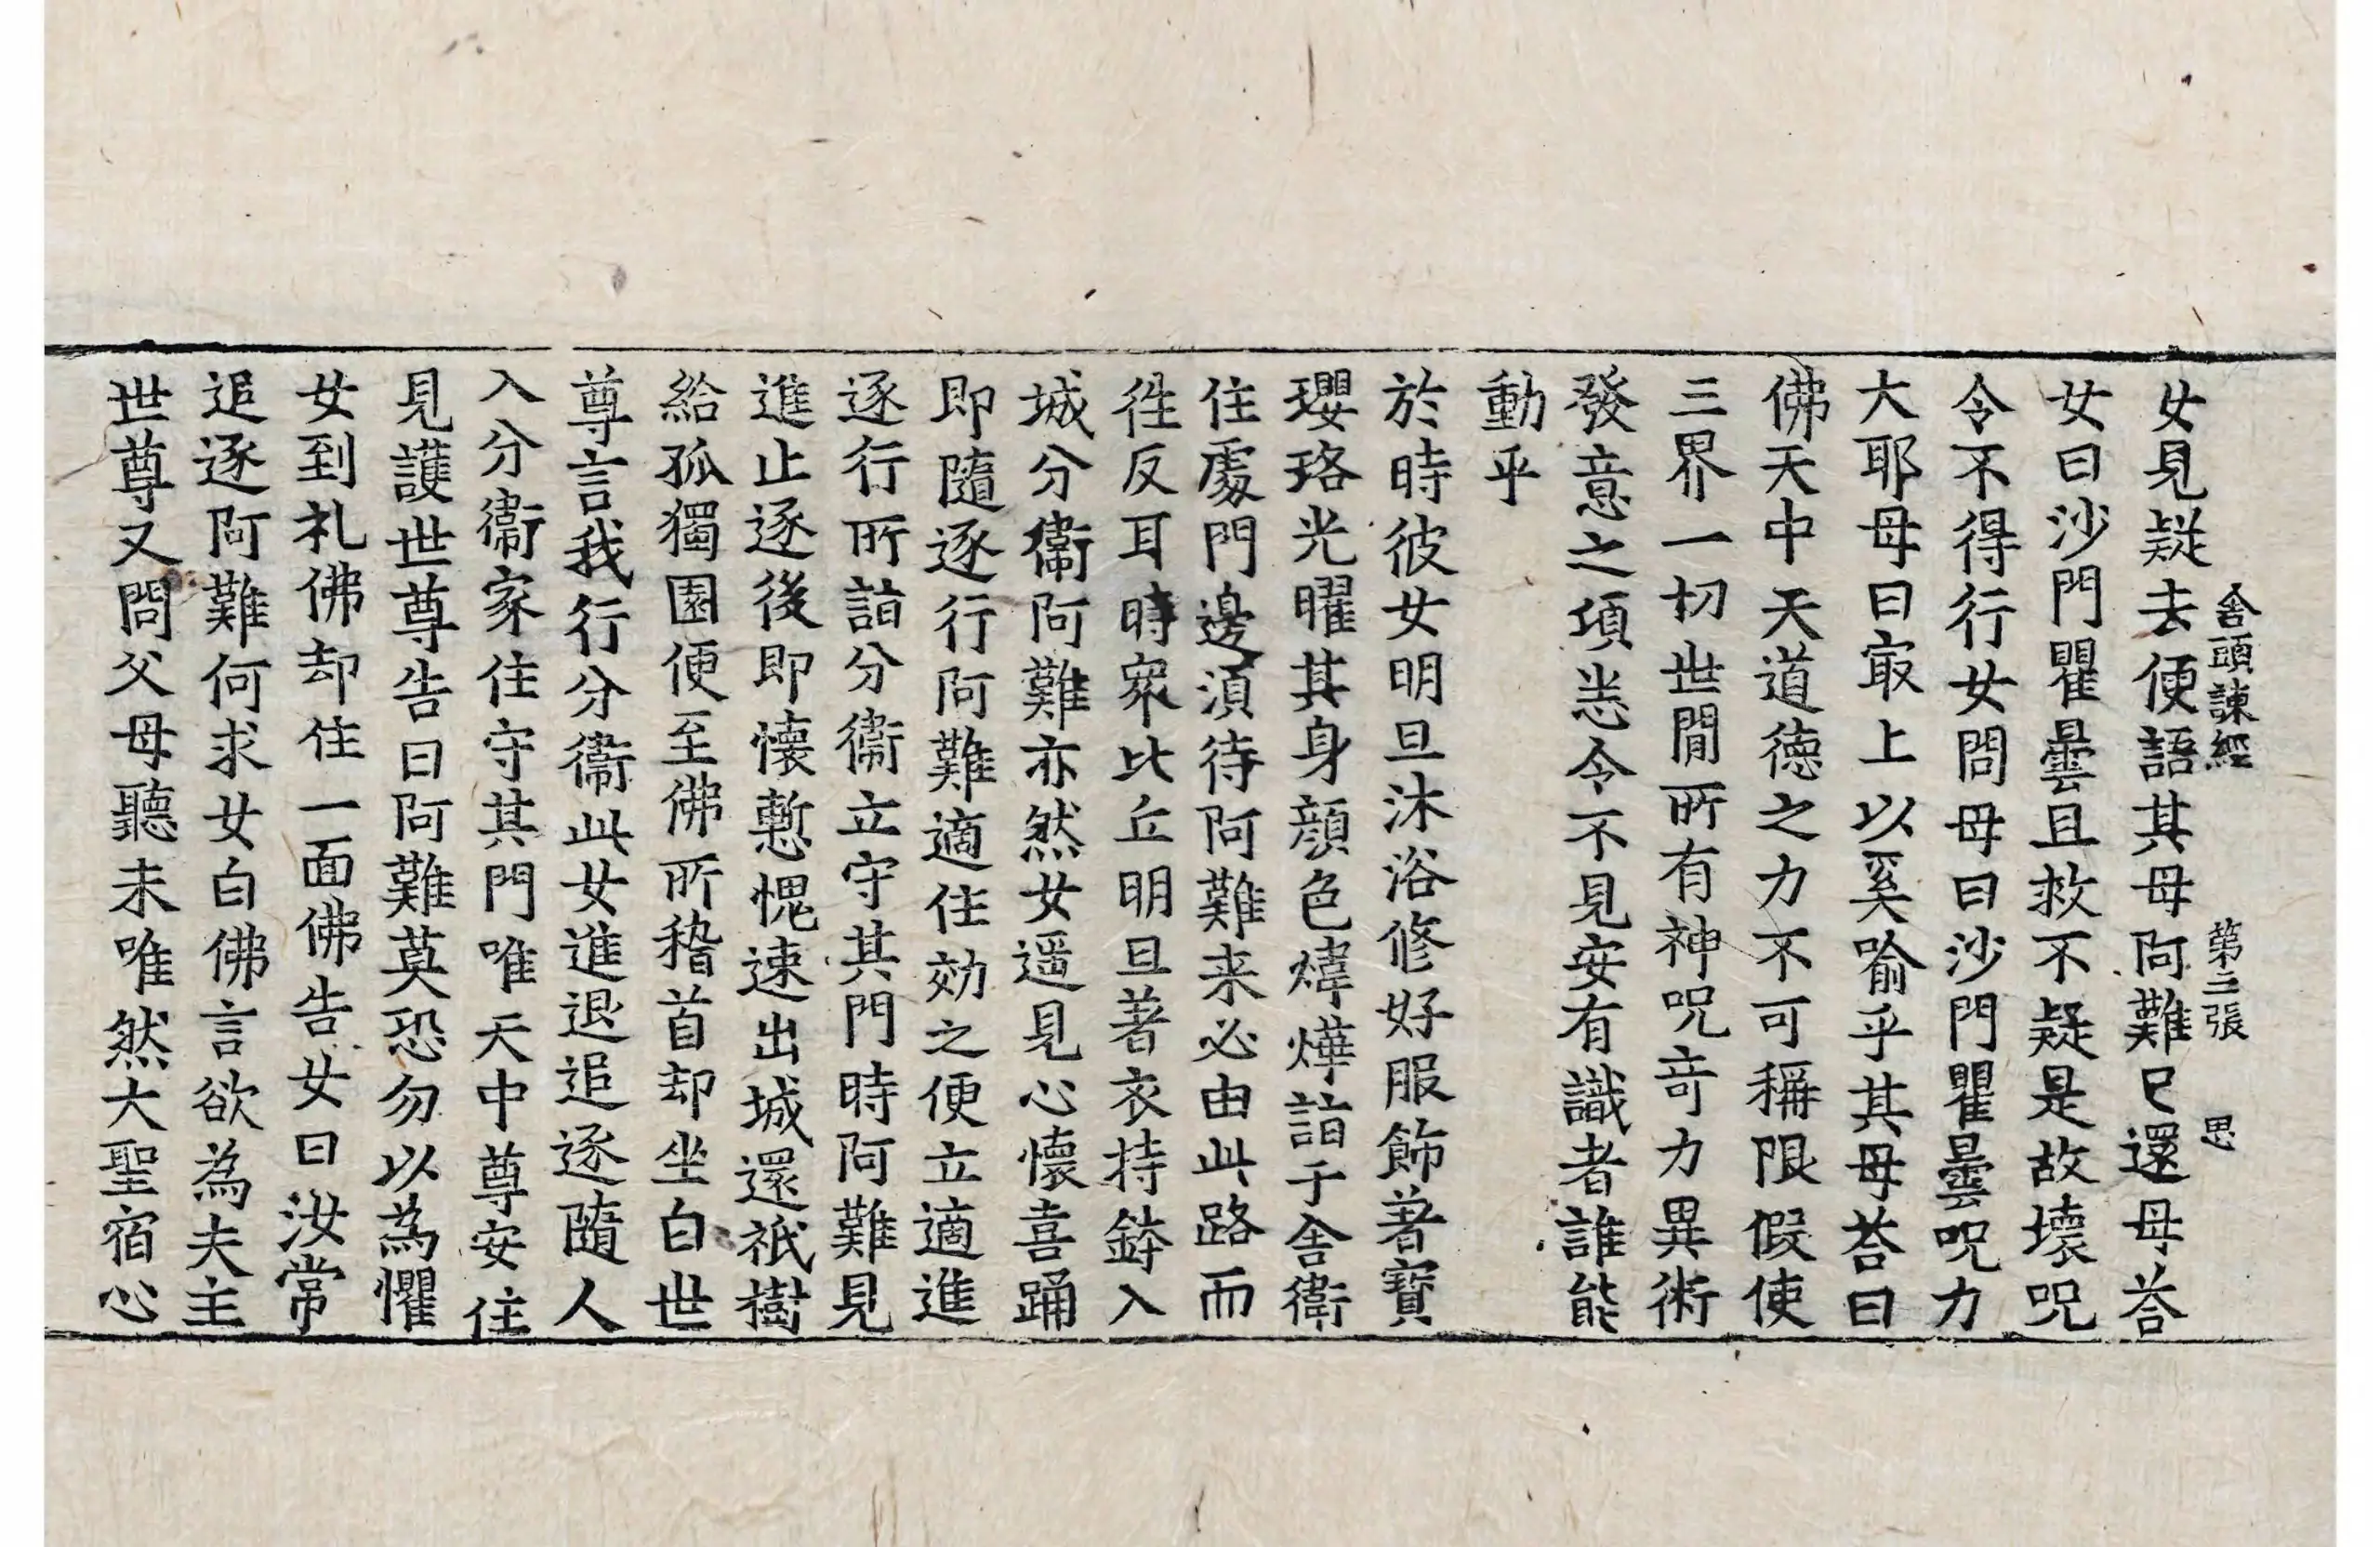 舎頭諫經　第三張　思
女見疑去便語其母阿難已還母荅
女曰沙門瞿曇且救不疑是故壞呪
令不得行女問母曰沙門瞿曇呪力
大耶母曰㝡上以奚喻乎其母荅曰
佛天中天道德之力不可稱限假使
三界一切世閒所有神呪竒力異術
發意之項恙令不見安有識者誰能
動乎
於時彼女明旦沐浴修好服飾著寳
瓔珞光曜其身顔色煒燁詣于舎衛
住處門邊湏待阿難来必由此路而
徃反耳時衆比丘明旦著衣持鉢入
城分衞阿難亦然女遥見心懷喜踊
即隨逐行阿難適住効之便立適進
逐行所詣分衞立守其門時阿難見
進止逐後即懷慙愧速出城還祇樹
給孤獨園便至佛所稽首却坐白世
尊言我行分衞此女進退追逐隨人
入分衞家住守其門唯天中尊安住
見護世尊告曰阿難莫恐勿以為懼
女到礼佛却住一面佛告女曰汝常
追逐阿難何求女白佛言欲為夫主
世尊又問父母聽未唯然大聖宿心